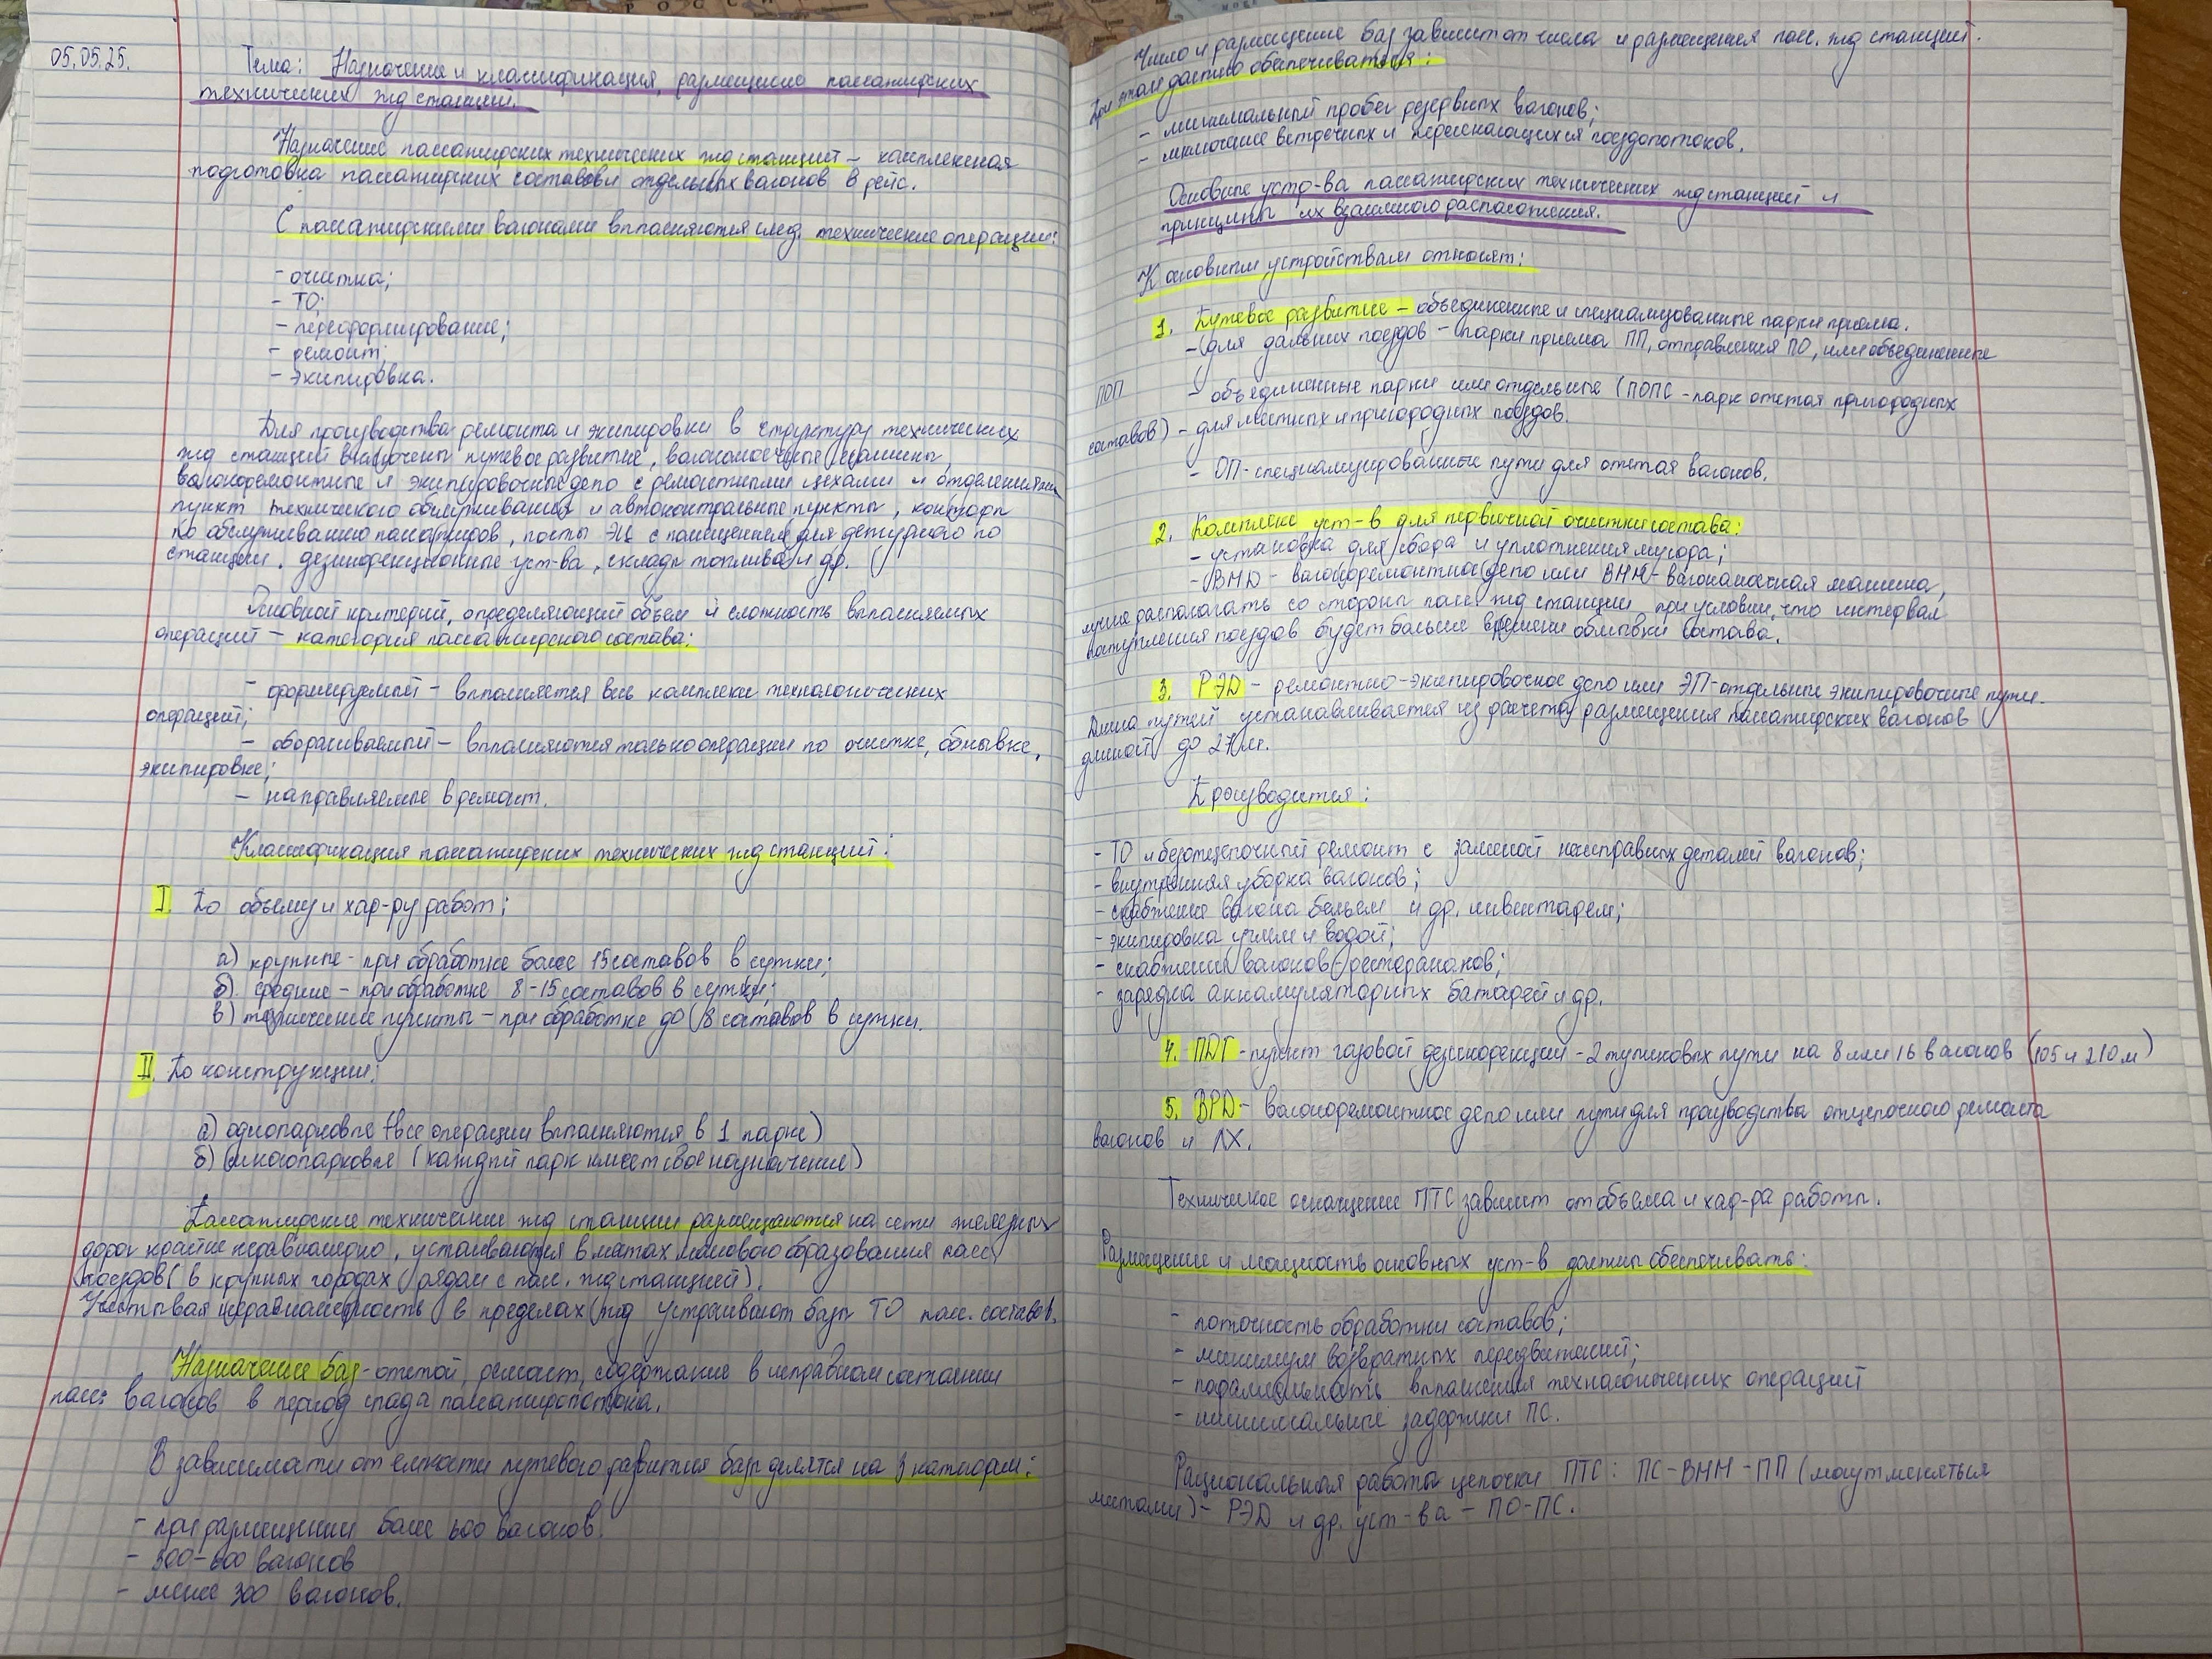 05.05.25.
Тема: Назначение и классификация, размещение пассажирских
технических жд станций.
Назначение пассажирских технических жд станций – комплексная
подготовка пассажирских составов и отдельных вагонов в рейс.
С пассажирскими вагонами выполняются след. технические операции:
- очистка;
- ТО;
- переформирование;
- ремонт;
- экипировка.
Для производства ремонта и экипировки в структуру технических
жд станций включены путевое развитие, вагономоечные машины,
вагоноремонтные и экипировочные депо с ремонтными цехами и отделениями
пункт технического обслуживания и автоконтрольные пункты, конторы
по обслуживанию пассажиров, посты ЭЦ с помещением для дежурного по
станции, дезинфекционные уст-ва, склады топлива и др.
Основной критерий, определяющий объем и сложность выполняемых
операций – категория пассажирского состава:
- формируемый – выполняется весь комплекс технологических
операций;
- оборачиваемый – выполняются только операции по очистке, обмывке,
экипировке;
- направляемые в ремонт.
Классификация пассажирских технических жд станций:
I. По объему и хар-ру работ:
а) крупные - при обработке более 15 составов в сутки;
б) средние - при обработке 8-15 составов в сутки;
в) технические пункты – при обработке до 8 составов в сутки.
II. По конструкции:
а) однопарковые (все операции выполняются в 1 парке)
б) многопарковые (каждый парк имеет свое назначение)
Пассажирские технические жд станции размещаются на сети железных
дорог крайне неравномерно, устаиваются в местах массового образования пасс.
поездов (в крупных городах рядом с пасс. жд станцией).
Учитывая неравномерность в пределах жд устраивают базы ТО пасс. составов.
Назначение баз - отстой, ремонт, содержание в исправном состоянии
пасс. вагонов в период спада пассажиропотока.
В зависимости от емкости путевого развития базы делятся на 3 категории:
- при размещении более 600 вагонов.
- 300-600 вагонов
- менее 300 вагонов.
Число и размещение баз зависит от числа и размещения пасс. жд станций.
При этом должно обеспечиваться:
- минимальный пробег резервных вагонов;
- встречных и пересекающихся поездопотоков.
Основные устр-ва пассажирских технических жд станций и
принципы их взаимного расположения.
К основным устройствам относят:
1. Путевое развитие – объединенные и специализованные парки приема.
- для дальних поездов – парки приема ПП, отправления ПО, или объединенные
ПОП
- объединенные парки или отдельные (ПОПС - парк отстоя пригородных
составов) - для местных и пригородных поездов.
- ОП - специализированные пути для отстоя вагонов.
2. Комплекс уст-в для первичной очистки состава:
- установка для сбора и уплотнения мусора;
- ВМД - вагоноремонтное депо или ВММ - вагономоечная машина,
лучше располагать со стороны пасс. жд станции при условии, что интервал
поступления поездов будет больше времени обмывки состава.
3. РЭД - ремонтно-экипировочное депо или ЭП - отдельные экипировочные пути.
Длина путей устанавливается из расчета размещения пассажирских вагонов
длиной до 27 м.
Производится:
- ТО и безотцепочный ремонт с заменой неисправных деталей вагонов;
- внутренняя уборка вагонов;
- снабжение вагона бельем и др. инвентарем;
- экипировка углем и водой;
- снабжение вагонов-ресторананов;
- зарядка аккамуляторных батарей и др.
4. ПДГ - пункт газовой дезинфекции - 2 тупиковых пути на 8 или 16 вагонов (105 и 210 м)
5. ВРД - вагоноремонтное депо или пути для производства отцепочного ремонта
вагонов и ЛХ.
Техническое оснащение ПТС зависит от объема и хар-ра работы.
Размещение и мощность основных уст-в должны обеспечивать:
- поточность обработки составов;
- минимум возвратных передвижений;
- выполнения технологических операций
- минимальные задержки ПС.
Рациональная работы цепочки ПТС: ПС-ВММ-ПП (могут меняться
местами) - РЭД и др. уст-ва - ПО-ПС.